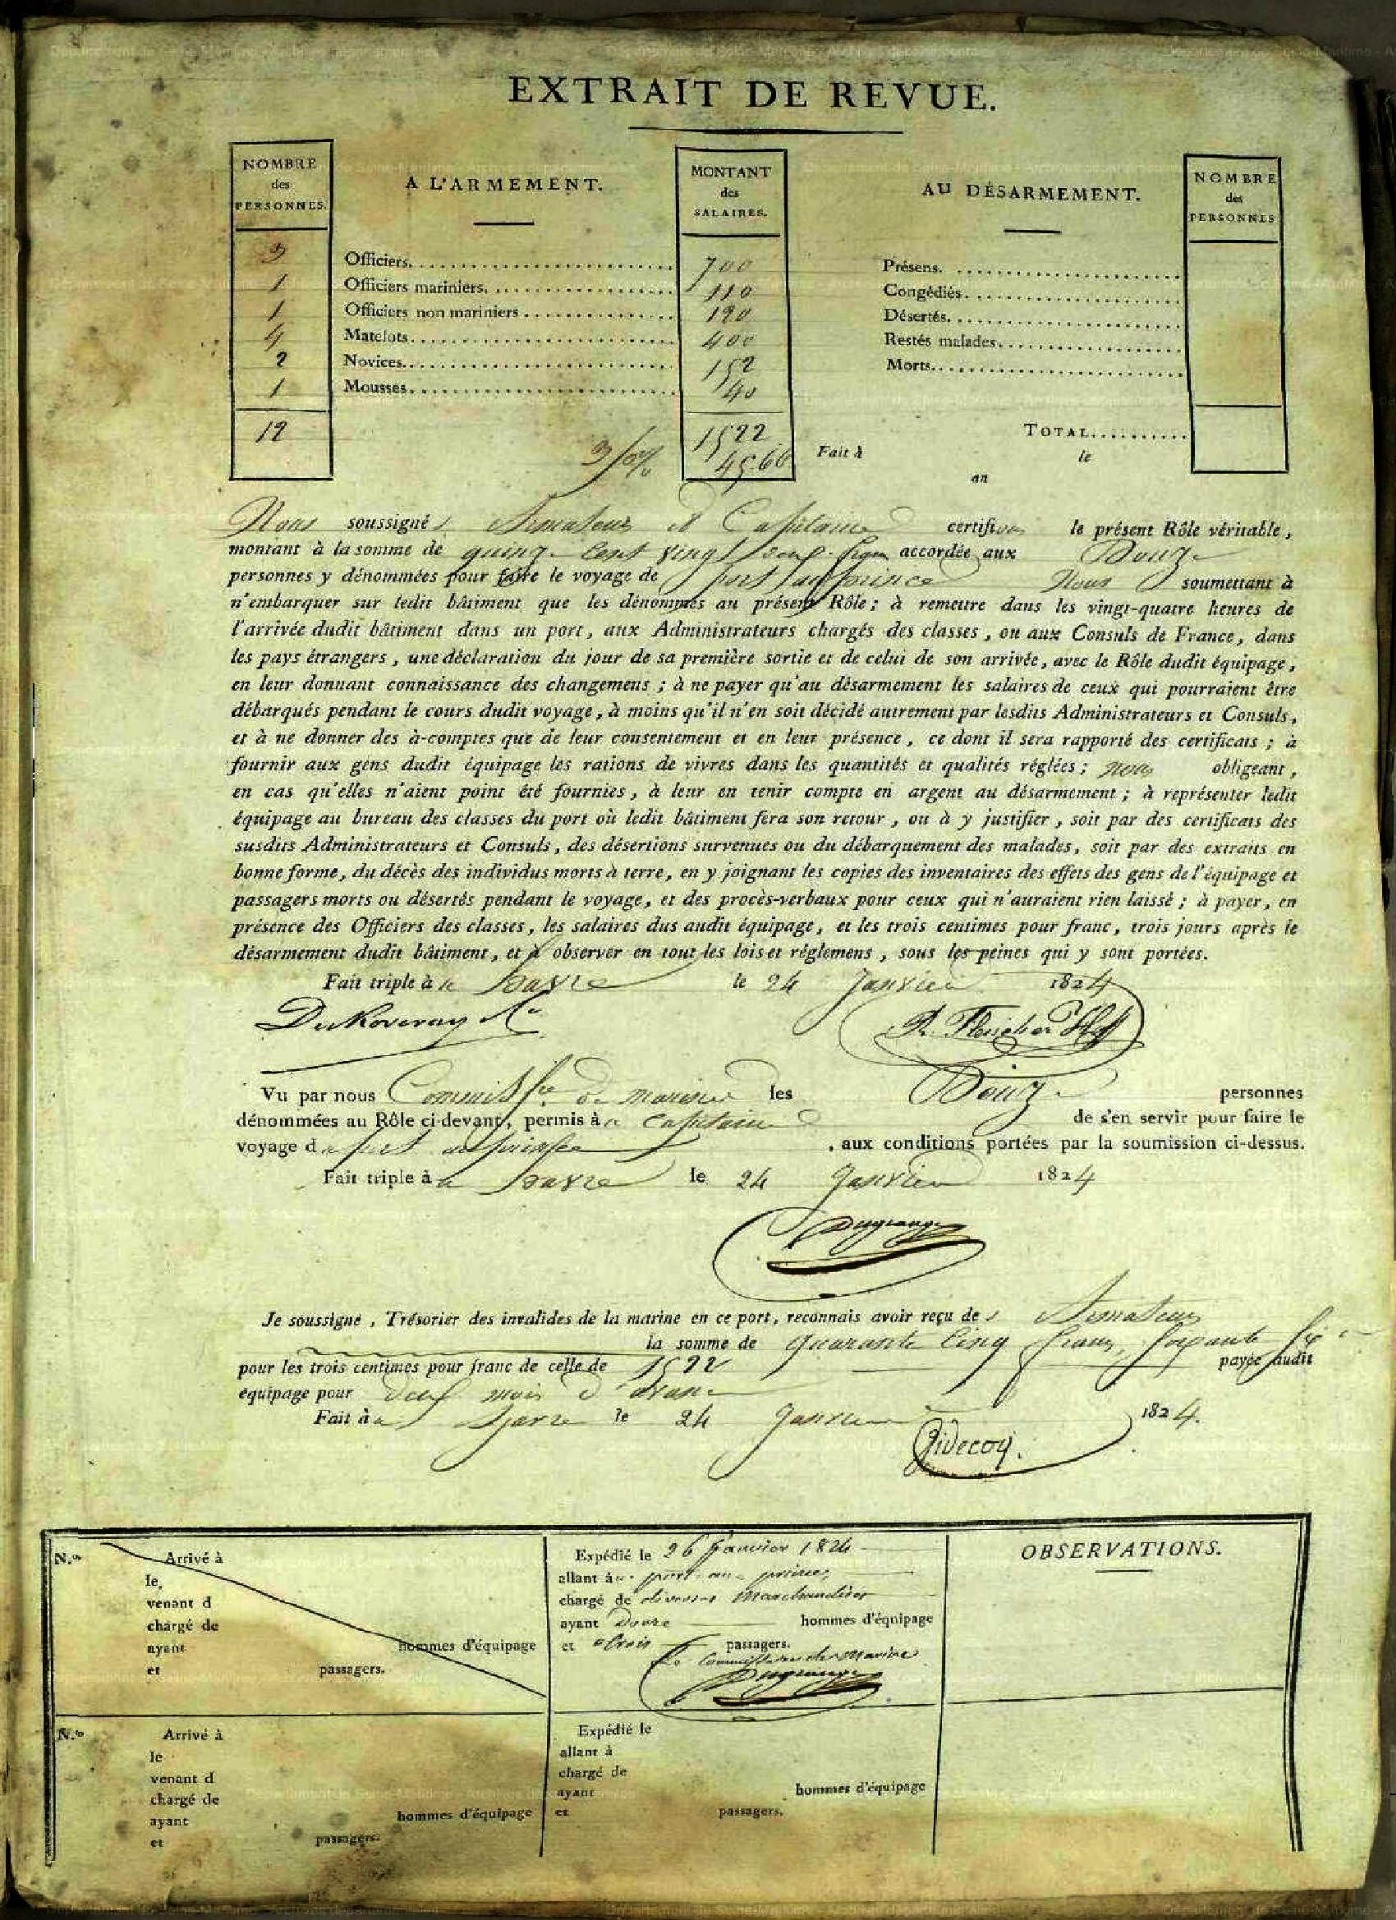 EXTRAIT DE REVUE.
NOMBRE
des
PERSONNES.
A L'ARMEMENT.
MONTANT
des
SALAIRES.
AU DÉSARMEMENT.
NOMBRE
des
PERSONNES
3 Officiers 700
1 Officiers mariniers 110
1 Officiers non mariniers 120
4 Matelots 400
2 Novices 152
1 Mousses 40
12 1522
3/0% 45.66
Présens.
Congédiés
Désertés
Restés malades
Morts
TOTAL
Fait à le
an
Nous soussignés Armateur et Capitaine certifions le présent Rôle véritable,
montant à la somme de quinze Cent vingt deux francs accordée aux Douze
personnes y dénommées pour faire le voyage de port au prince Nous soumettant à
n'embarquer sur ledit bâtiment que les dénommés au présent Rôle ; à remettre dans les vingt-quatre heures de
l'arrivée dudit bâtiment dans un port, aux Administrateurs chargés des classes, ou aux Consuls de France, dans
les pays étrangers, une déclaration du jour de sa première sortie et de celui de son arrivée, avec le Rôle dudit équipage,
en leur donnant connaissance des changemens ; à ne payer qu'au désarmement les salaires de ceux qui pourraient être
débarqués pendant le cours dudit voyage, à moins qu'il n'en soit décidé autrement par lesdits Administrateurs et Consuls,
et à ne donner des à-comptes que de leur consentement et en leur présence, ce dont il sera rapporté des certificats ; à
fournir aux gens dudit équipage les rations de vivres dans les quantités et qualités réglées ; nous obligeant,
en cas qu'elles n'aient point été fournies, à leur en tenir compte en argent au désarmement ; à représenter ledit
équipage au bureau des classes du port où ledit bâtiment fera son retour, ou à y justifier, soit par des certificats des
susdits Administrateurs et Consuls, des désertions survenues ou du débarquement des malades, soit par des extraits en
bonne forme, du décès des individus morts à terre, en y joignant les copies des inventaires des effets des gens de l'équipage et
passagers morts ou désertés pendant le voyage, et des procès-verbaux pour ceux qui n'auraient rien laissé ; à payer, en
présence des Officiers des classes, les salaires dus audit équipage, et les trois centimes pour franc, trois jours après le
désarmement dudit bâtiment, et à observer en tout les lois et réglemens, sous les peines qui y sont portées.
Fait triple à le havre le 24 Janvier 1824
Vu par nous Commissre de marine les Douze personnes
dénommées au Rôle ci-devant, permis à capitaine de s'en servir pour faire le
voyage d port au prince, aux conditions portées par la soumission ci-dessus.
Fait triple à havre le 24 Janvier 1824
Je soussigné, Trésorier des invalides de la marine en ce port, reconnais avoir reçu de Armateur
la somme de quarante Cinq francs, soixante six
pour les trois centimes pour franc de celle de 1522 payée audit
équipage pour deux mois d'avance
Fait à havre le 24 Janvier 1824.
N.° Arrivé à
le,
venant d
chargé de
ayant hommes d'équipage
et passagers.
Expédié le 26 Janvier 1824
allant à port au prince,
chargé de diverses Marchandises
ayant Douze hommes d'équipage
et trois passagers.
Le Commissaire de Marine
OBSERVATIONS.
N.° Arrivé à
le
venant d
chargé de
ayant hommes d'équipage
et passagers.
Expédié le
allant à
chargé de
ayant hommes d'équipage
et passagers.